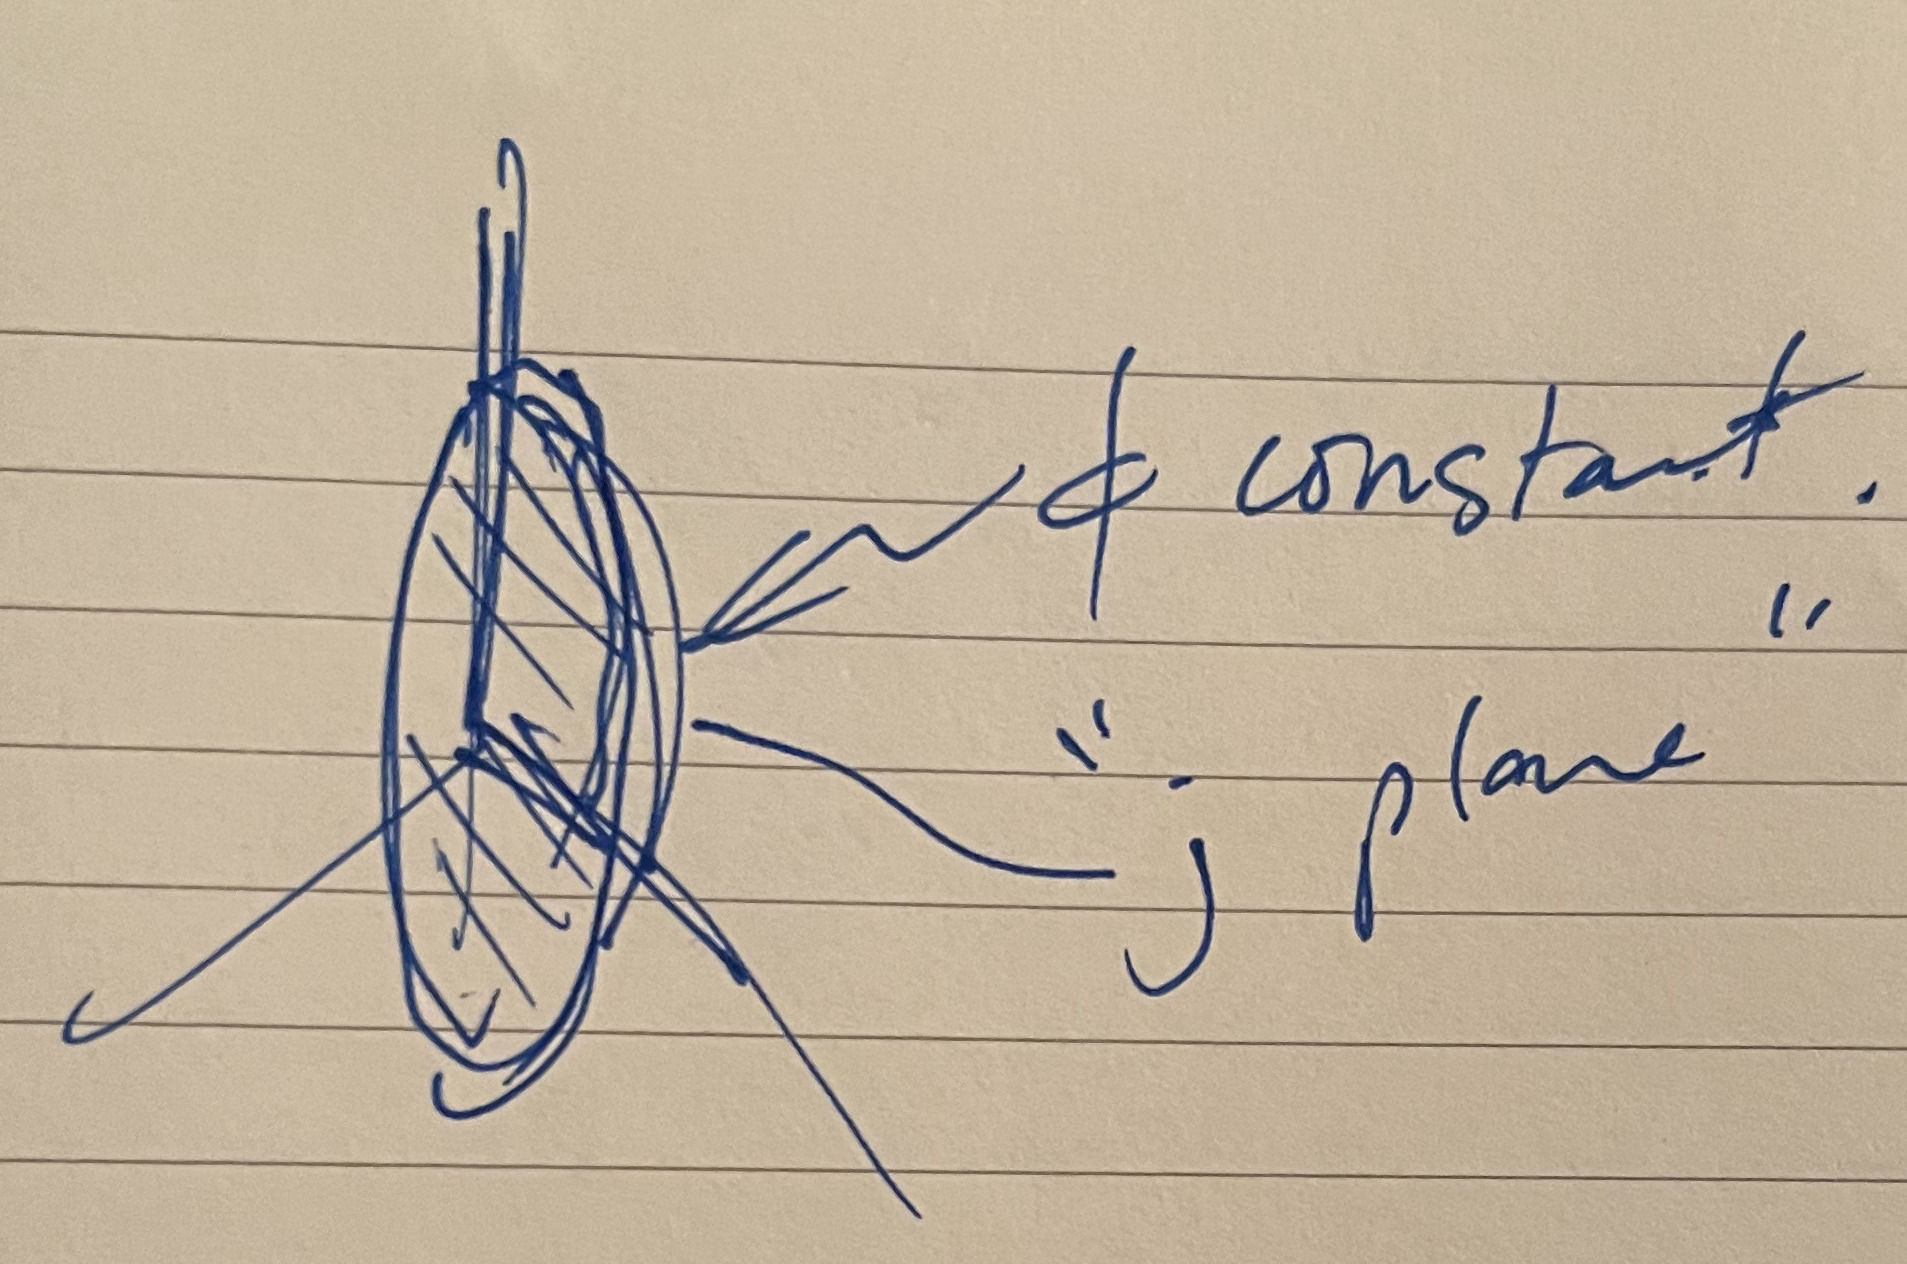 ϕ constant.
"j plane"